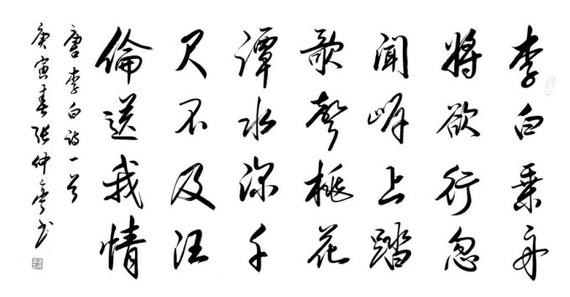 李白乘舟
將欲行忽
聞岸上踏
歌聲桃花
潭水深千
尺不及汪
倫送我情
唐李白詩一首
庚寅春張仲亭書